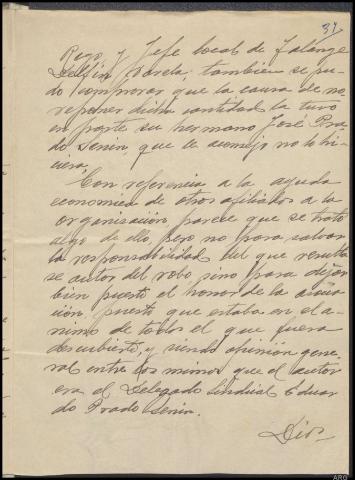 37
Rego, y Jefe local de Falange
Delfín Varela; tambien se pu-
do comprovar que la causa de no
reponer dicha cantidad la tuvo
en parte su hermano José Pra-
do Senin, que le aconsejo no lo hi-
ciera.
Con referencia a la ayuda
economica de otros afiliados a la
organisación parece que se trato
algo de ello, pero no para salvar
la responsabilidad del que resulta
se autor del robo sino para dejar
bien puesto el honor de la
puesto que estaba en el a-
nimo de todos el que fuera
descubierto, y siendo opinión gene-
ral entre los mismos que el autor
era el Delegado Sindical Eduar-
do Prado Senin.
Dios
ARG